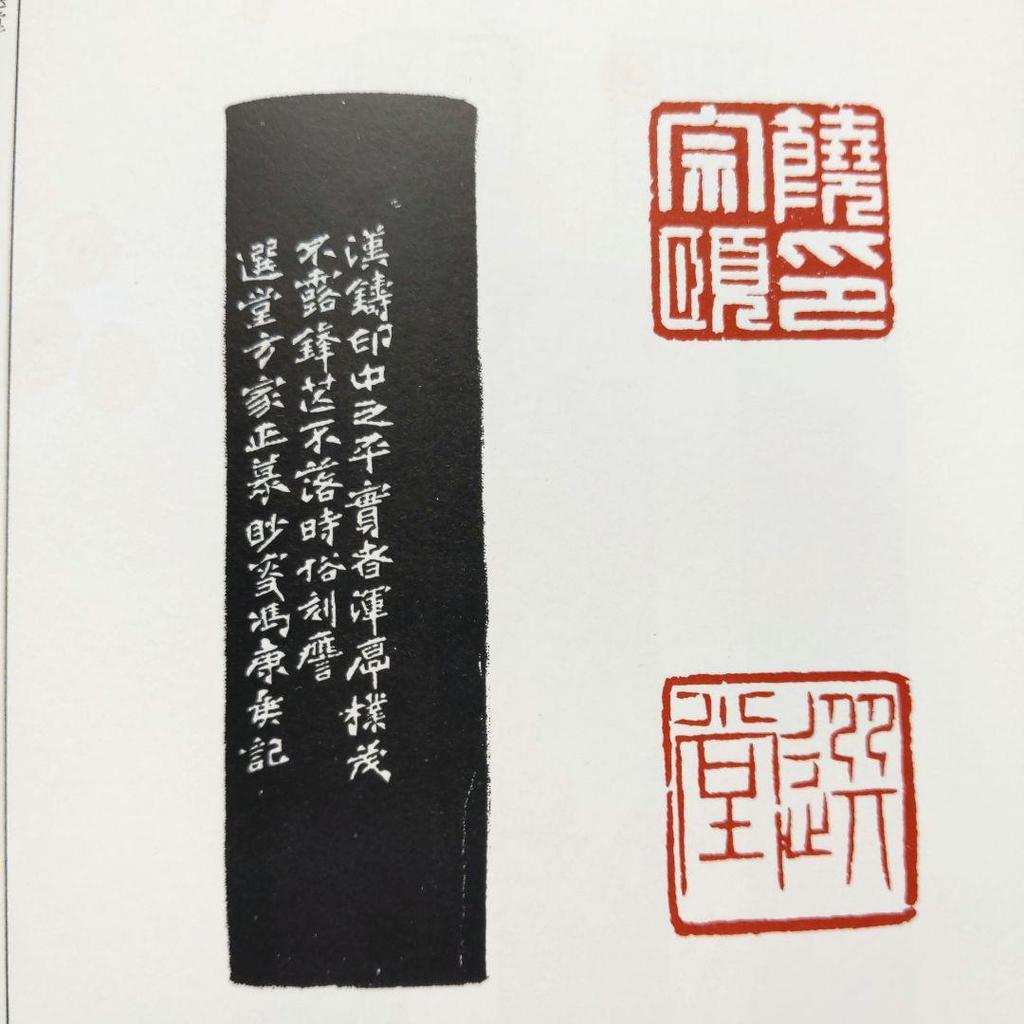 饒印
宗頤
選堂
漢鑄印中之平實者渾厚樸茂
不露鋒芒不落時俗刻譍
選堂方家正篆眇叜馮康矦記